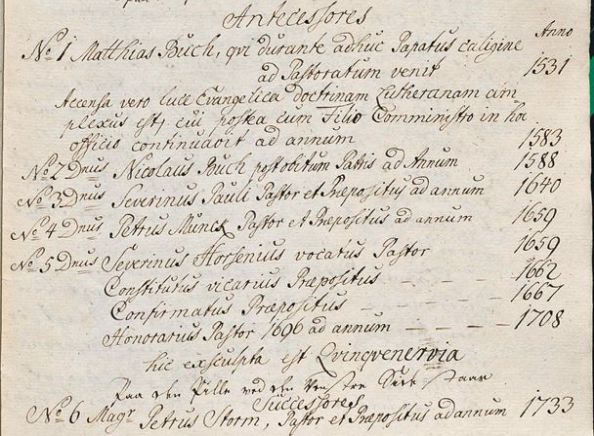 Antecessores
Anno
No 1 Matthias Buch, qvi durante adhuc Papatus caligine
ad Pastoratum venit 1531
Accensa vero luce Evangelica doctrinam Lutheranam am-
plexus est, cui postea cum Filio Comministro in hoc
officio continuavit ad annum 1583
No 2 Dnus Nicolaus Buch post obitum Patris ad Annum 1588
No 3 Dnus Severinus Pauli Pastor et Præpositus ad annum 1640
No 4 Dnus Petrus Munck Pastor et Præpositus ad annum 1659
No 5 Dnus Severinus Horsenius vocatus Pastor 1659
Constitutus vicarius Præpositus - - - 1662
Confirmatus Præpositus - - - - 1667
Honorarius Pastor 1696 ad annum - - - - 1708
hic exsculpta est Qvinqvenervia
Paa den Pille ved den Venstre Side staar
Successores
No 6 Magr Petrus Storm, Pastor et Præpositus ad annum 1733